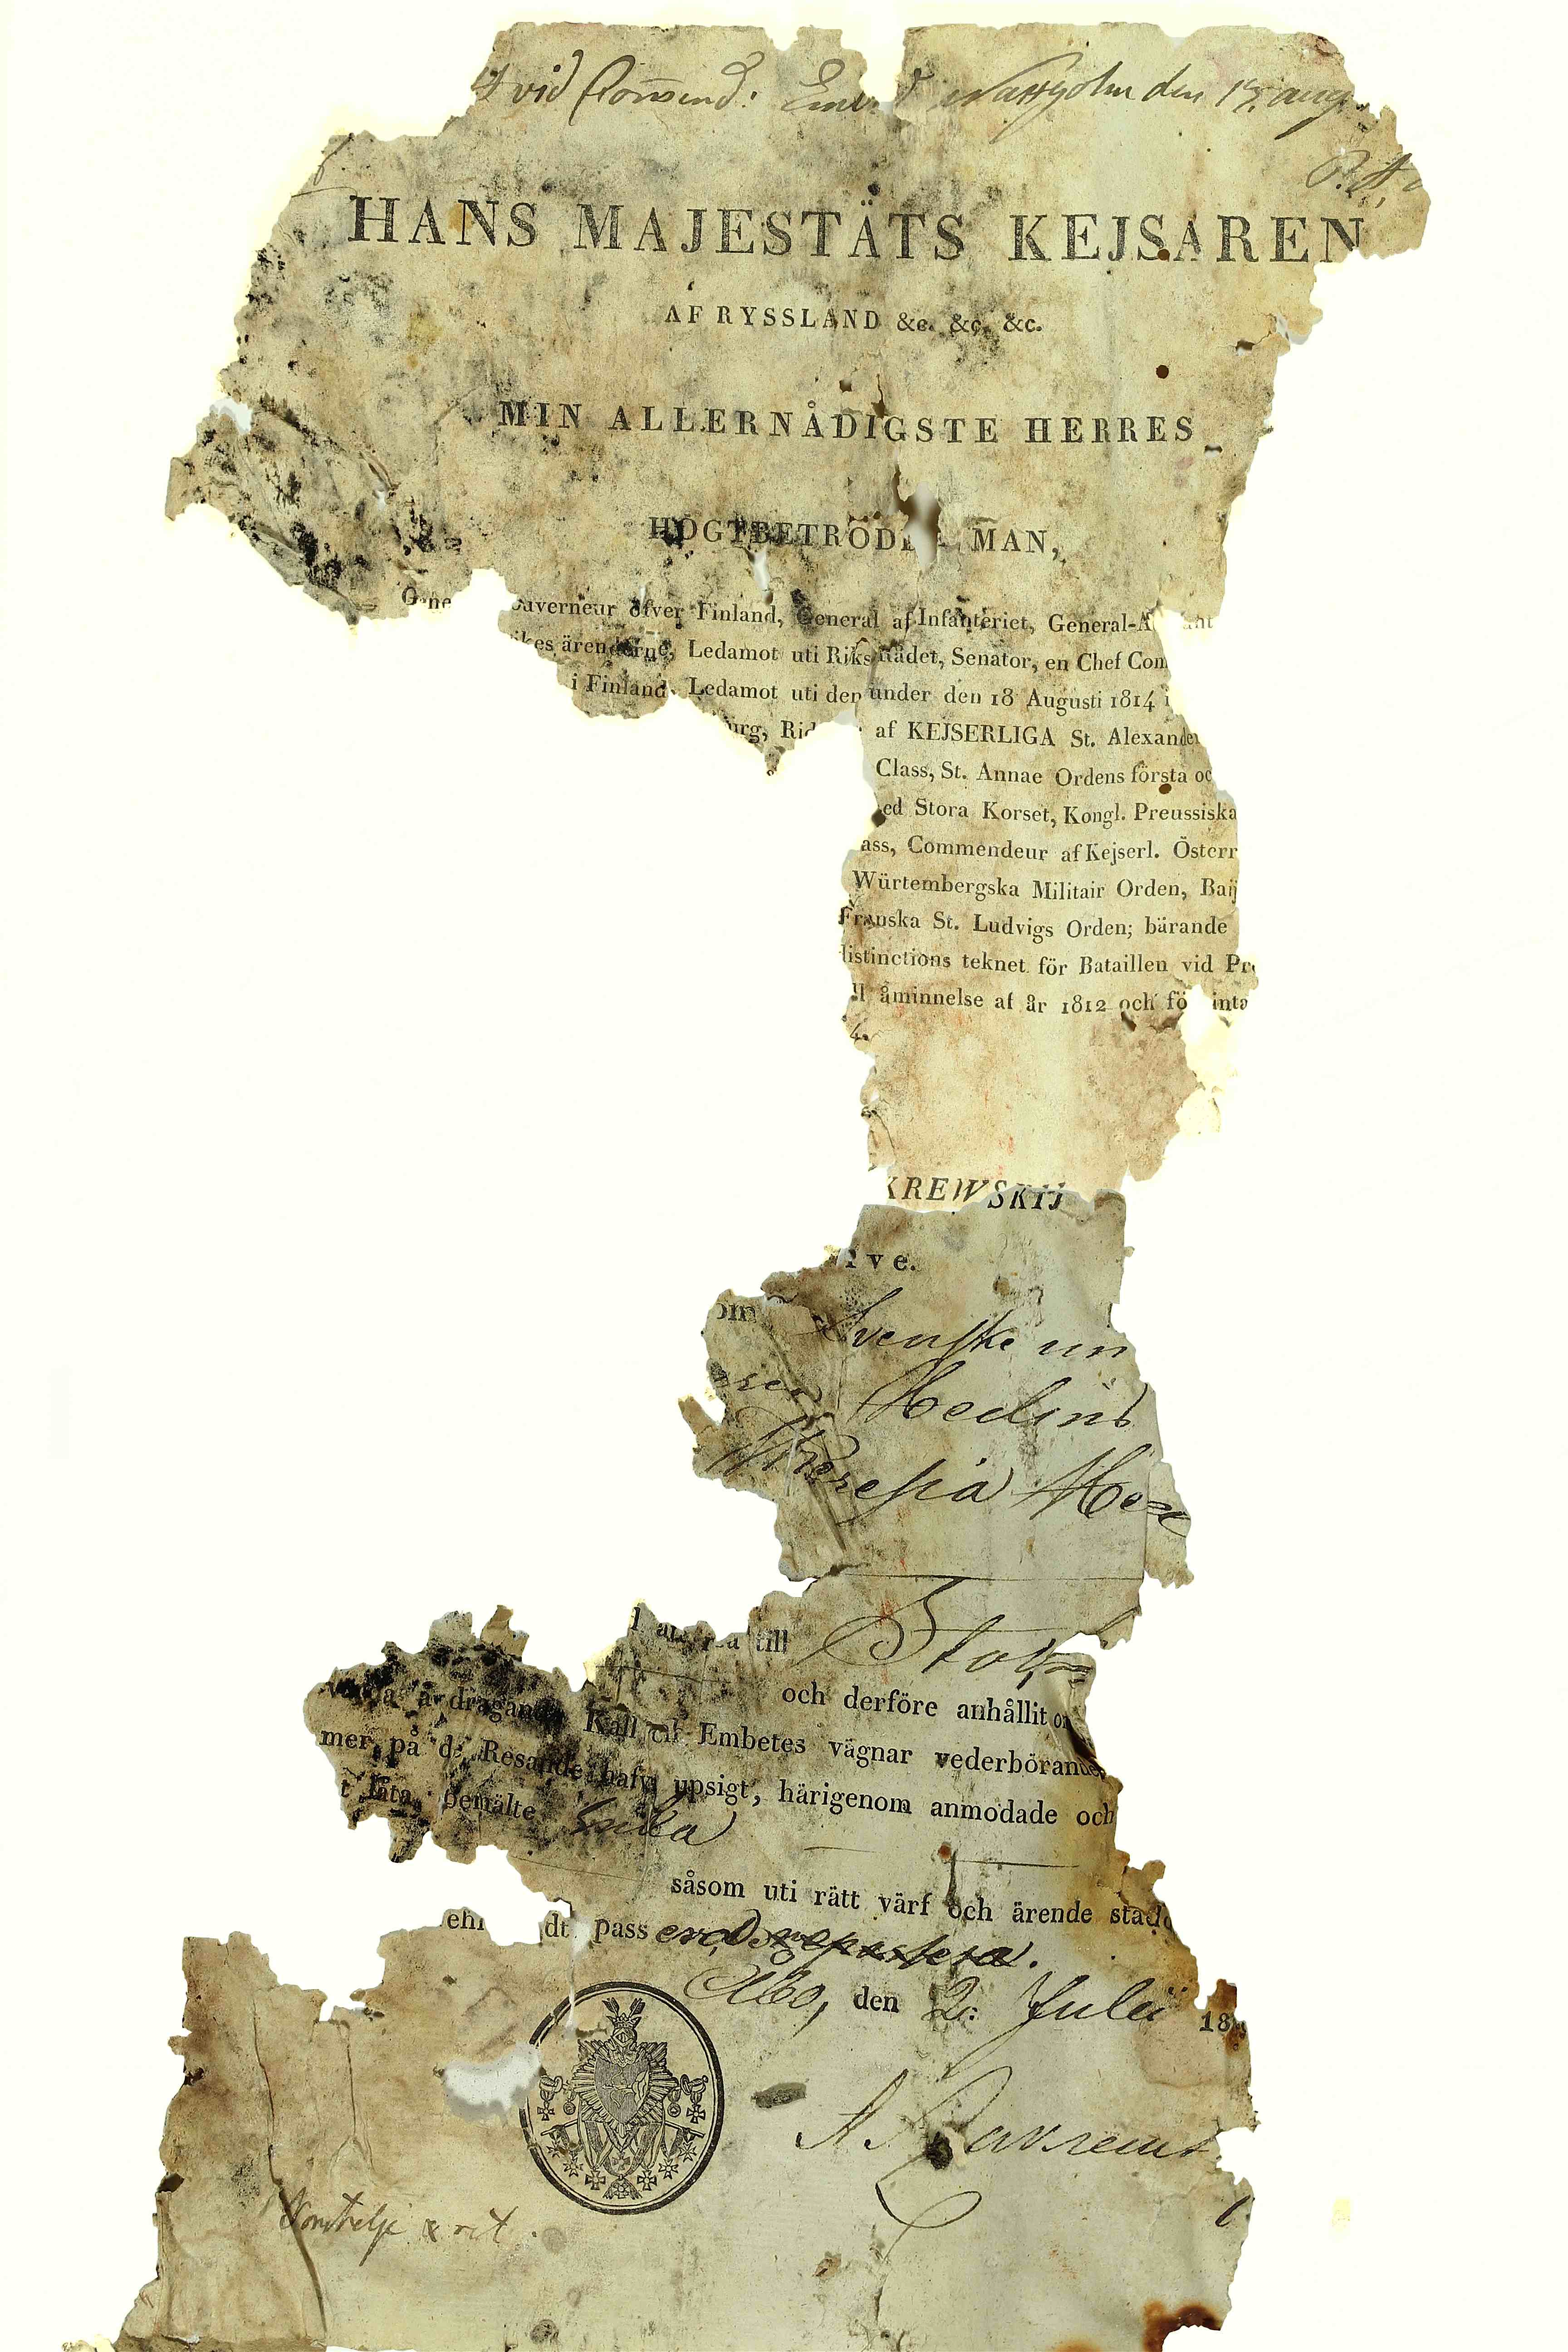 vid den 17. aug.
HANS MAJESTÄTS KEJSAREN
AF RYSSLAND &c. &c. &c.
MIN ALLERNÅDIGSTE HERRES
HÖGTBETRODDE MAN,
Gene uverneur öfver Finland, General af Infanteriet, General-A
ikes ärenderne, Ledamot uti Riks Rådet, Senator, en Chef Com
i Finland, Ledamot uti den under den 18 Augusti 1814 i
urg, Rid af KEJSERLIGA St. Alexande
Class, St. Annae Ordens första oc
ed Stora Korset, Kongl. Preussiska
ass, Commendeur af Kejserl. Österr
Würtembergska Militair Orden, Baij
Franska St. Ludvigs Orden; bärande
distinctions teknet för Bataillen vid Pr
ll åminnelse af år 1812 och fö inta
4.
KREWSKIJ
ve.
om Svenske un
Hedind
Theresia Hed
till Stok
och derföre anhållit o
dragand Kall och Embetes vägnar vederbörande
mer på de Resande hafv upsigt, härigenom anmodade och
t låta bemälte Enka
såsom uti rätt värf och ärende stadd
ehi dt pass erad repassera.
Åbo, den 2: Julii 18
Norrtelje